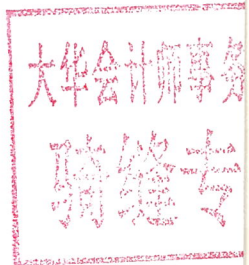 大华会计师事务
骑缝专